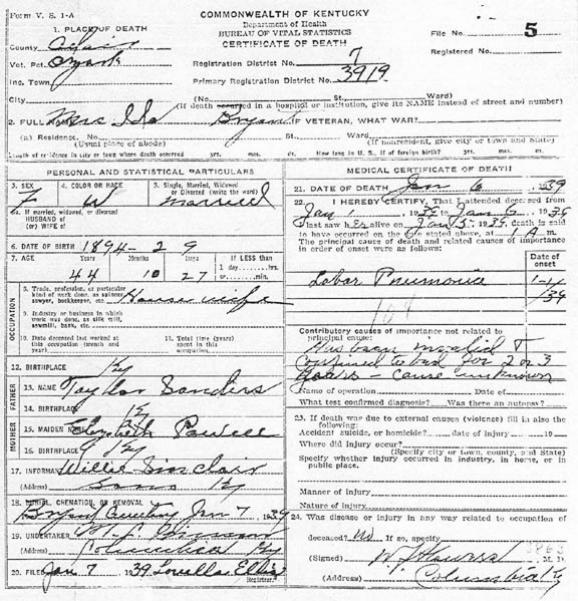 Form V. S. 1-A
COMMONWEALTH OF KENTUCKY
Department of Health
BUREAU OF VITAL STATISTICS
CERTIFICATE OF DEATH
File No. 5
Registered No.
1. PLACE OF DEATH
County Adair
Vot. Pct. Ozark
Inc. Town
Registration District No. 7
Primary Registration District No. 3919
City (No. St., Ward)
(If death occurred in a hospital or institution, give its NAME instead of street and number)
2. FULL NAME Mrs Ida Bryant IF VETERAN, WHAT WAR?
(a) Residence. No. St., Ward
(Usual place of abode) (If nonresident, give city or town and State)
Length of residence in city or town where death occurred yrs. mos. ds. How long in U. S., if of foreign birth? yrs. mos. ds.
PERSONAL AND STATISTICAL PARTICULARS
3. SEX F
4. COLOR OR RACE W
5. Single, Married, Widowed or Divorced (write the word) married
5a. If married, widowed, or divorced
HUSBAND of
(or) WIFE of
6. DATE OF BIRTH 1894-2 9
7. AGE Years Months Days
44 10 27
If LESS than
1 day, hrs.
or min.
OCCUPATION
8. Trade, profession, or particular
kind of work done, as spinner,
sawyer, bookkeeper, etc. House wife
9. Industry or business in which
work was done, as silk mill,
sawmill, bank, etc.
10. Date deceased last worked at
this occupation (month and
year)
11. Total time (years)
spent in this
occupation
12. BIRTHPLACE Ky
FATHER
13. NAME Taylor Sanders
14. BIRTHPLACE Ky
MOTHER
15. MAIDEN NAME Elizabeth Powell
16. BIRTHPLACE Ky
17. INFORMANT Willie Sinclair
(Address) Ky
18. BURIAL, CREMATION, OR REMOVAL
Bryant Cemetery Jan 7 1939
19. UNDERTAKER
(Address) Columbia Ky
20. FILED Jan 7 1939 Lovella Ellis
Registrar.
MEDICAL CERTIFICATE OF DEATH
21. DATE OF DEATH Jan 6 1939
22. I HEREBY CERTIFY, That I attended deceased from
Jan 1 1939 to Jan 6 1939
I last saw her alive on Jan 5 1939 death is said
to have occurred on the date stated above, at 1 A m.
The principal cause of death and related causes of importance
in order of onset were as follows:
Date of onset
Lobar Pneumonia 1-1/39
108
Contributory causes of importance not related to
principal cause:
Has been invalid &
confined to bed for 2 or 3
years - cause unknown
Name of operation Date of
What test confirmed diagnosis? Was there an autopsy?
23. If death was due to external causes (violence) fill in also the
following:
Accident suicide, or homicide? date of injury 19
Where did injury occur?
(Specify city or town, county, and State)
Specify whether injury occurred in industry, in home, or in
public place.
Manner of injury
Nature of injury
24. Was disease or injury in any way related to occupation of
deceased? No If so, specify
(Signed) M. D.
(Address) Columbia Ky